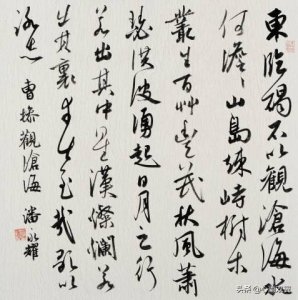 東臨碣石以觀滄海水
何澹澹山島竦峙樹木
叢生百草豐茂秋風蕭
瑟洪波湧起日月之行
若出其中星漢燦爛若
出其裏幸甚至哉歌以
詠志 曹操觀滄海 潘耀
头条